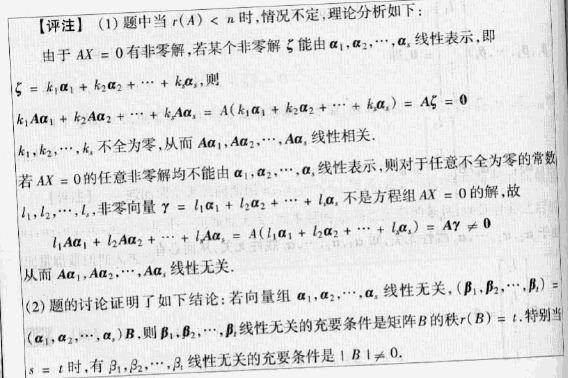 【评注】 (1)题中当 r(A) < n 时,情况不定,理论分析如下:
由于 AX = 0 有非零解,若某个非零解 ζ 能由 α₁,α₂,⋯,αₛ 线性表示,即
ζ = k₁α₁ + k₂α₂ + ⋯ + kₛαₛ,则
k₁Aα₁ + k₂Aα₂ + ⋯ + kₛAαₛ = A(k₁α₁ + k₂α₂ + ⋯ + kₛαₛ) = Aζ = 0
k₁,k₂,⋯,kₛ 不全为零,从而 Aα₁,Aα₂,⋯,Aαₛ 线性相关.
若 AX = 0 的任意非零解均不能由 α₁,α₂,⋯,αₛ 线性表示,则对于任意不全为零的常数
l₁,l₂,⋯,lₛ,非零向量 γ = l₁α₁ + l₂α₂ + ⋯ + lₛαₛ 不是方程组 AX = 0 的解,故
l₁Aα₁ + l₂Aα₂ + ⋯ + lₛAαₛ = A(l₁α₁ + l₂α₂ + ⋯ + lₛαₛ) = Aγ ≠ 0
从而 Aα₁,Aα₂,⋯,Aαₛ 线性无关.
(2)题的讨论证明了如下结论:若向量组 α₁,α₂,⋯,αₛ 线性无关,(β₁,β₂,⋯,βₜ) =
(α₁,α₂,⋯,αₛ)B,则 β₁,β₂,⋯,βₜ 线性无关的充要条件是矩阵 B 的秩 r(B) = t.特别当
s = t 时,有 β₁,β₂,⋯,βₜ 线性无关的充要条件是 | B | ≠ 0.